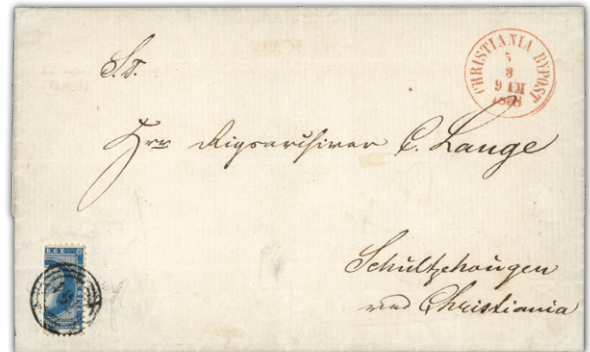 S. T.
CHRISTIANIA BYPOST
5
8
9 EM
1858
Herr Rigsarchivar C. Lange
Schultzehaugen
ved Christiania